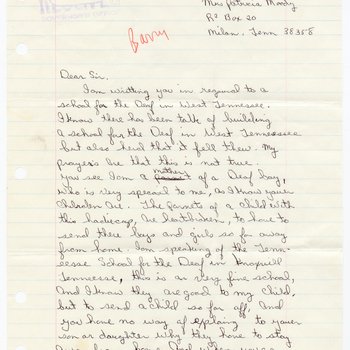 Mrs Patricia Moody
Rt Box 20
Milan, Tenn 38358
Barry
Dear Sir,
I am writting you in reguard to a
school for the Deaf in West Tennessee.
I know there has been talk of building
a school for the Deaf in West Tennessee
but also herd that it fell thew. My
prayers are that this is not true.
You see I am a mother of a Deaf boy,
who is very special to me, as I know your
Children are. The parnets of a child with
this handicap, are heartbroken, to have to
send there boys and girls so far away
from home. I am speaking of the Tenn-
essee School for the Deaf in Knoxvill
Tennessee, this is an very fine school,
And I know they are good to my Child,
but to send a child so far off, And
you have no way of explaing to your
son or daughter why they have to stay